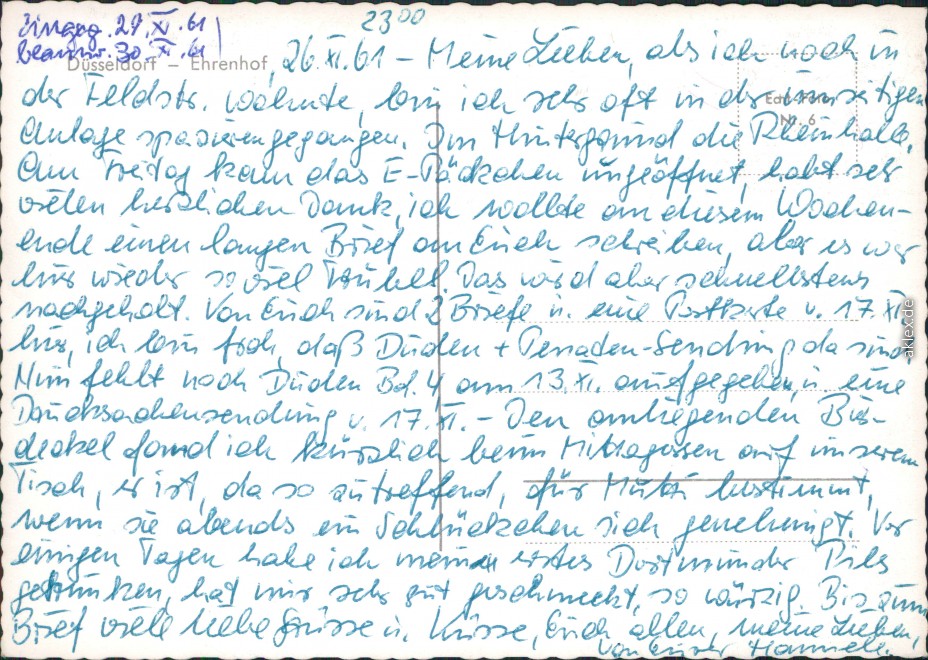 23⁰⁰
Eingeg. 29.XI.61
beantw. 30.XI.61
Düsseldorf – Ehrenhof
26.XI.61 – Meine Lieben, als ich noch in
der Feldstr. wohnte, bin ich sehr oft in der umseitigen
Anlage spazierengegangen. Im Hintergrund die Rheinhalle.
Am Freitag kam das E-Päckchen ungeöffnet, habt sehr
vielen herzlichen Dank, ich wollte an diesem Wochen-
ende einen langen Brief an Euch schreiben, aber es war
hier wieder so viel Trubel. Das wird aber schnellstens
nachgeholt. Von Euch sind 2 Briefe u. eine Postkarte v. 17.XI.
hier, ich bin froh, daß Duden + Penaden-Sendung da sind.
Nun fehlt noch Duden Bd. 4 am 13.XI. aufgegeben u. eine
Drucksachensendung v. 17.XI. – Den anliegenden Bier-
deckel fand ich kürzlich beim Mittagessen auf unserem
Tisch, er ist, da so zutreffend, für Mutti bestimmt,
wenn sie abends ein Schlückchen sich genehmigt. Vor
einigen Tagen habe ich mein erstes Dortmunder Pils
getrunken, hat mir sehr gut geschmeckt, so würzig. Bis zum
Brief viele liebe Grüsse u. Küsse, Euch allen, meine Lieben,
von Eurer Hannele.
Echt Foto
Nr. 6
aklex.de